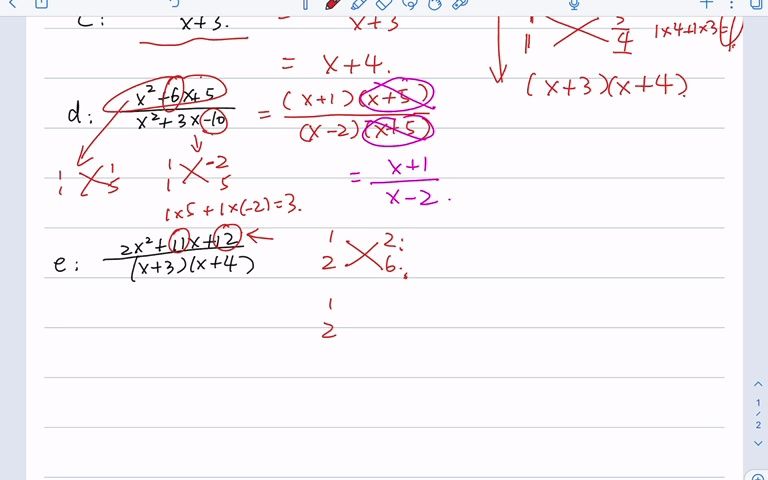 c: x+3. = x+3
= x+4.
1 3
1 4 1x4+1x3=
(x+3)(x+4).
d: x²+6x+5 / x²+3x-10 = (x+1)(x+5) / (x-2)(x+5)
1 1
1 5
1 -2
1 5
= x+1 / x-2.
1x5+1x(-2)=3.
e: 2x²+11x+12 / (x+3)(x+4)
1 2:
2 6.
1
2
1
/
2